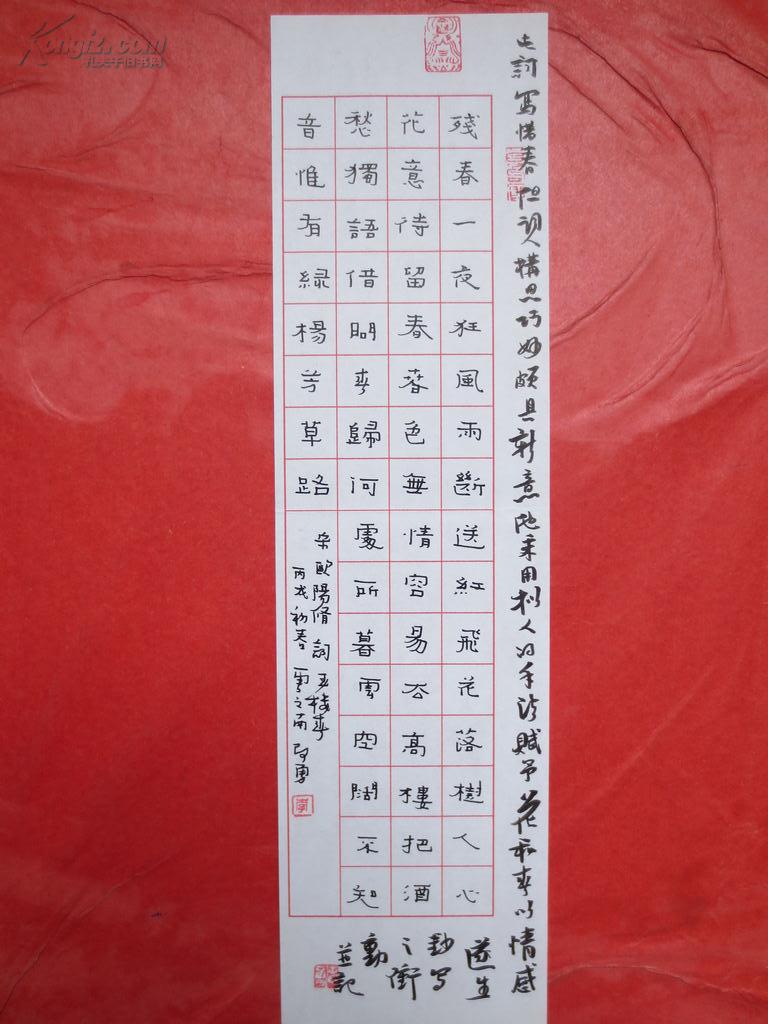 此词写惜春但词人構思巧妙颇具新意他采用拟人的手法赋予花和春以情感
遂生
钞写
之衝
動
並記
殘春一夜狂風雨斷送紅飛花落樹人心
花意待留春春色無情容易去高樓把酒
愁獨語借問春歸何處所暮雲空闊不知
音惟有綠楊芳草路
宋歐陽修詞玉樓春
丙戌初春雲之南
Kongfz.com
孔夫子旧书网